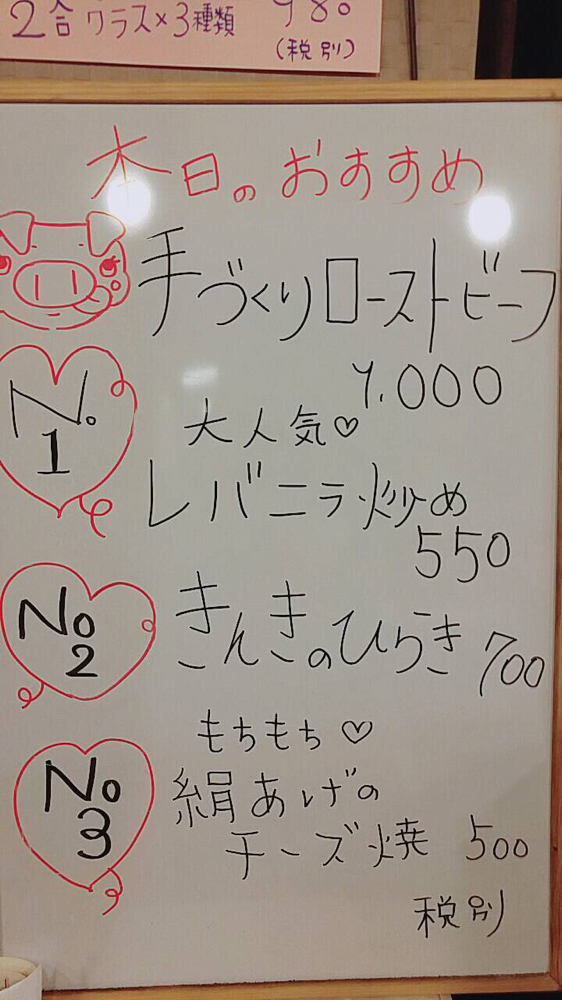 2合グラス×3種類 980
(税別)
本日のおすすめ
手づくりローストビーフ
1.000
No.1
大人気♡
レバニラ炒め
550
No2
きんきのひらき 700
No3
もちもち♡
絹あげの
チーズ焼 500
税別